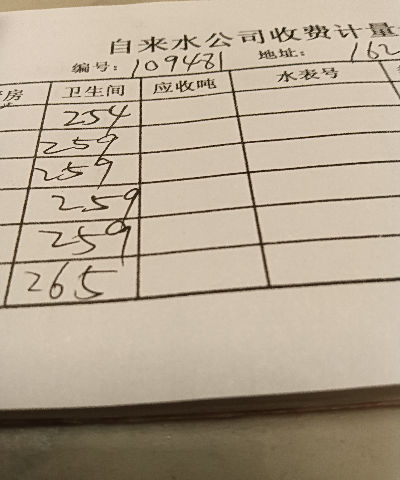 自来水公司收费计量
编号:109481 地址:162
房 卫生间 应收吨 水表号
254
259
259
259
259
265